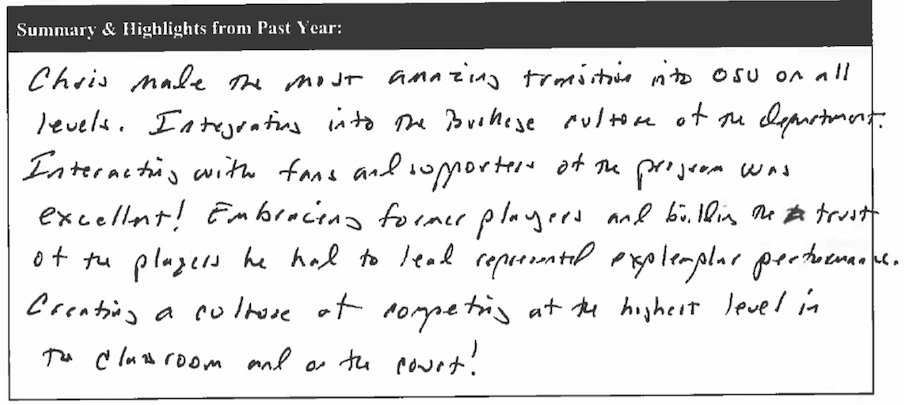 Summary & Highlights from Past Year:
Chris made the most amazing transition into OSU on all
levels. Integrating into the Buckeye culture of the department.
Interacting with fans and supporters of the program was
excellent! Embracing former players and building the trust
of the players he had to lead represented explemplar performance.
Creating a culture of competing at the highest level in
the classroom and on the court!